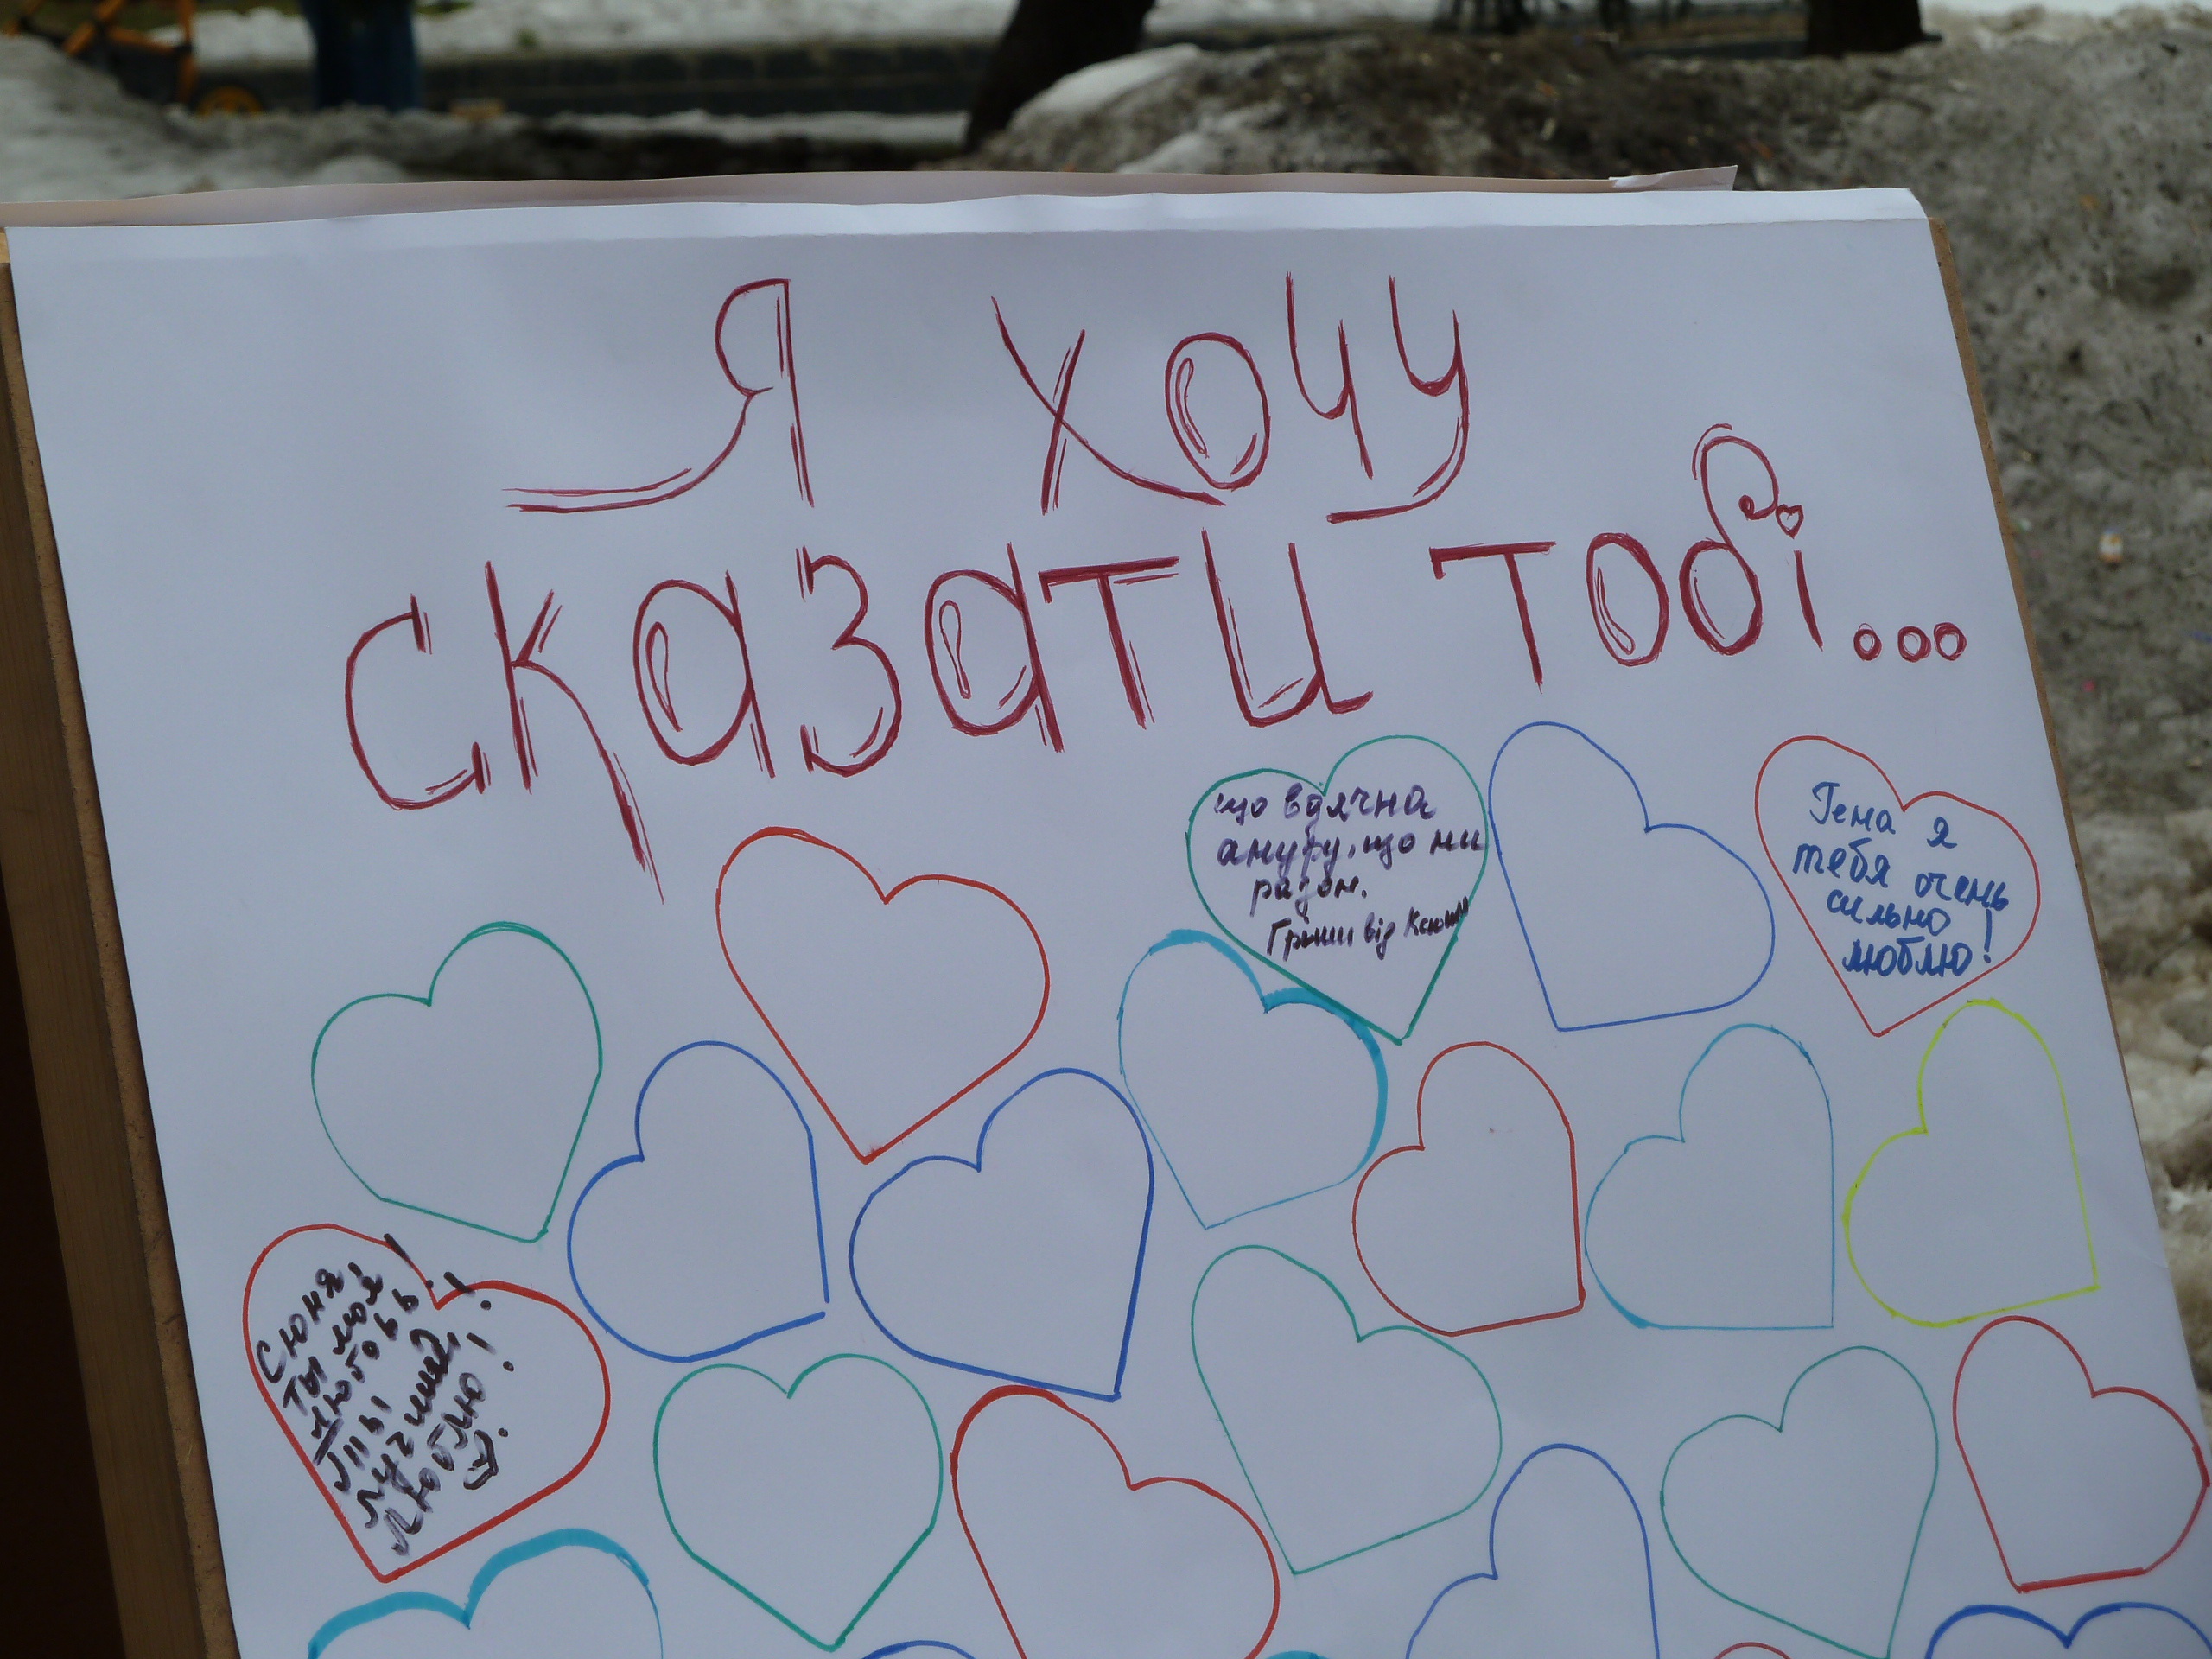 Я хочу
сказати тобі...
що вдячна
аниру, що ми
разом.
Гріши від Ксюши
Гена я
тебя очень
сильно
люблю!
Сюня!
ты моя
любовь!
Ты
лучший!
Люблю!